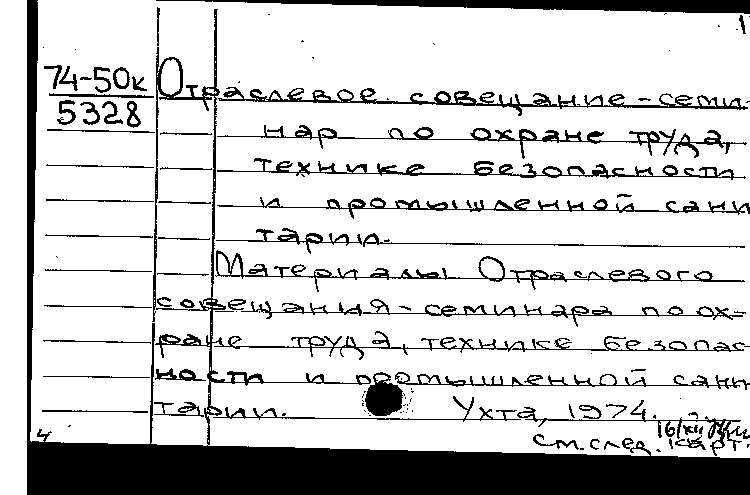 1
74-50к
5328
Отраслевое совещание-семи-
нар по охране труда,
технике безопасности
и промышленной сани
тарии.
Материалы Отраслевого
совещания-семинара по ох-
ране труда, технике безопас
ности и промышленной сани
тарии. Ухта, 1974.
16/XII
см. след. карт.
4